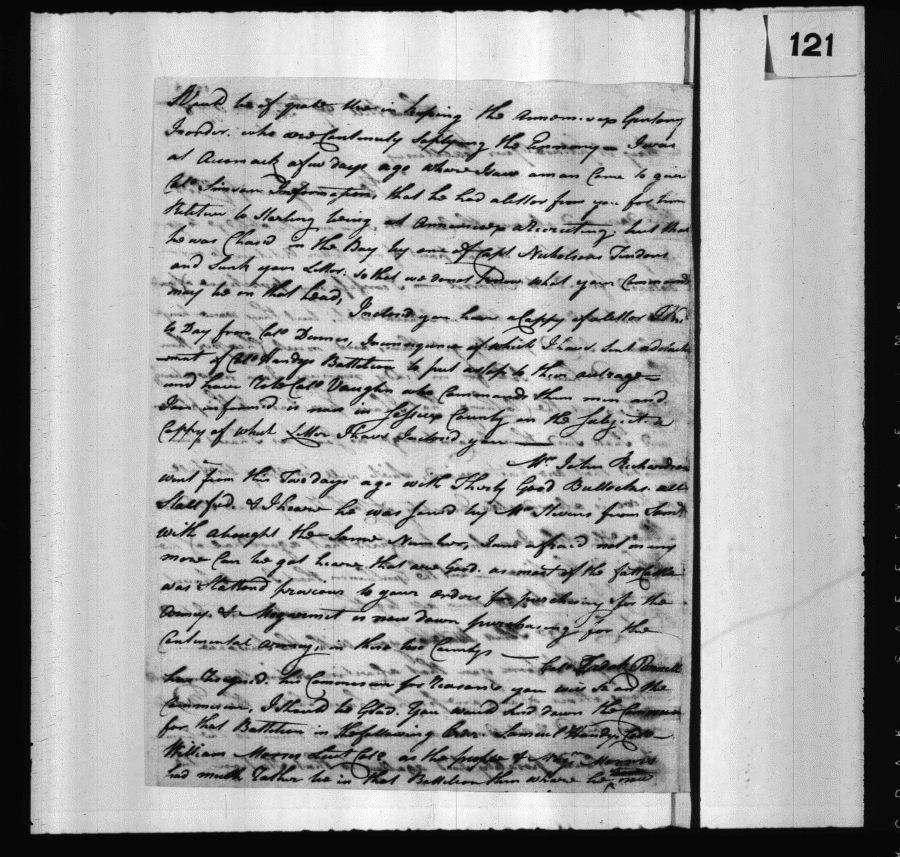 121
would be of great Use in keeping the Annemessex Gentery
Inorder. who are Continuly Suplying the Ennemy – I was
at Accomack a few days ago where I saw a man Come to give
Colo Simson Information, that he had a letter from you for him
Relitive to Starling being at Annamessex a Recruiting; but that
he was Chased in the Bay by one of Capt Nicholsons Tendors
and Sunk your Letter. so that we donot know what your Command
may be on that head,
Inclosd you have a Coppy of a letter
to Day from Colo Dennis, Inconsequence of which I have Sent a detach
ment of Colo Handys Battelion to put astop to their outrage –
and have Colo Vaughn who Commands them men and
I am informd is now in Sessex County on the Subject a
Coppy of what Letter I have Inclosd you —
Mr John Richardson
went from this Two days ago with Thirty Good Bullocks. all
Stall fed. & I heare he was Joind by Mr Stevens from
with abought the Same Number, I am afraid not many
more Can be got heare that are Good. as most of the fatt Cattle
was Slattend previous to your orders for purchasing for the
Armey. & is now down purchasing for the
Continental Armey, in those two Countys —
Colo
has Resignd. his Comission for Reasons you will Se on the
Commission, I Should be Glad. You would Send down the
for that Battelion in the following Order. Samuel Handy, Colo –
William Morris Lieut Colo as the people & Majr Morris
had much Rather be in that Battelion then where he now